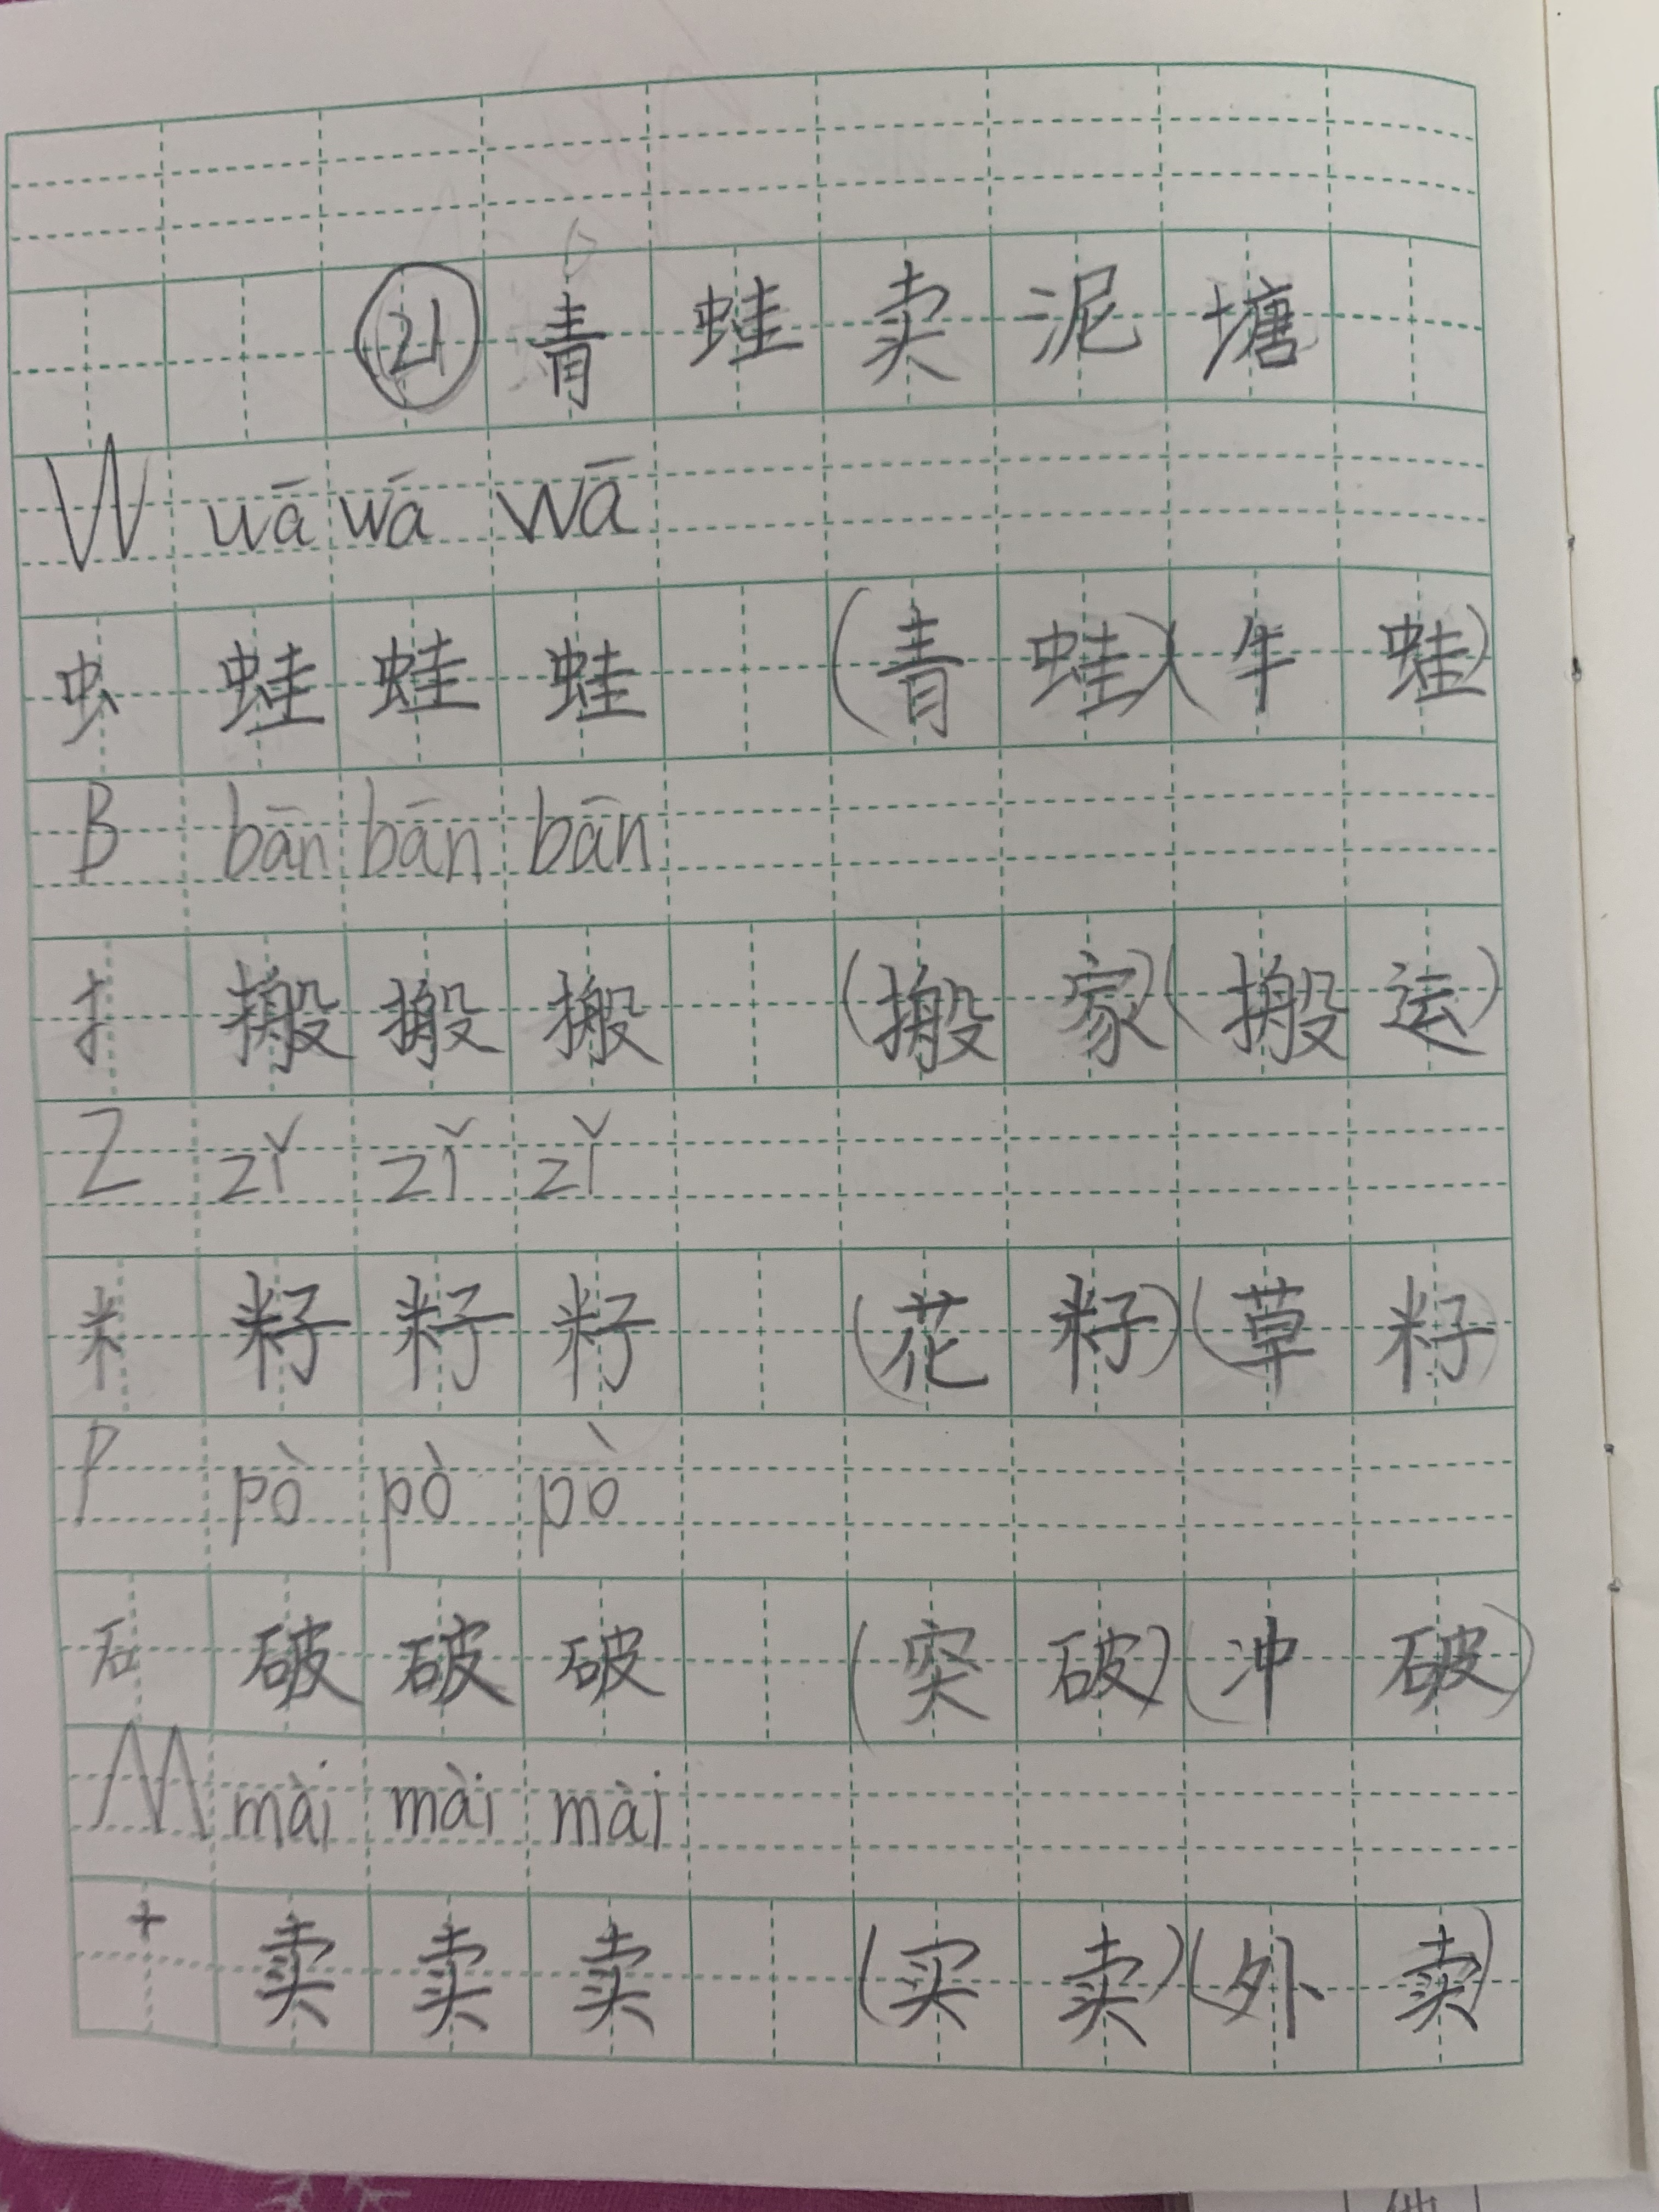 ㉑青蛙卖泥塘
W wā wā wā
虫 蛙 蛙 蛙 (青蛙)(牛蛙)
B bān bān bān
扌 搬 搬 搬 (搬家)(搬运)
Z zǐ zǐ zǐ
米 籽 籽 籽 (花籽)(草籽)
P pò pò pò
石 破 破 破 (突破)(冲破)
M mài mài mài
十 卖 卖 卖 (买卖)(外卖)